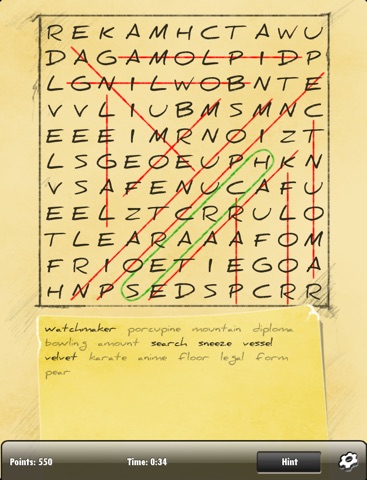 R E K A M H C T A W U
D A G A M O L P I D P
L G N I L W O B N T E
V V L I U B M S M N C
E E E I M R N O I Z T
L S G E O E U P H K N
V S A F E N U C A F U
E E L Z T C R R U L O
T L E A R A A A F O M
F R I O E T I E G O A
H N P S E D S P C R R
watchmaker porcupine mountain diploma
bowling amount search sneeze vessel
velvet karate anime floor legal form
pear
Points: 550 Time: 0:34 Hint